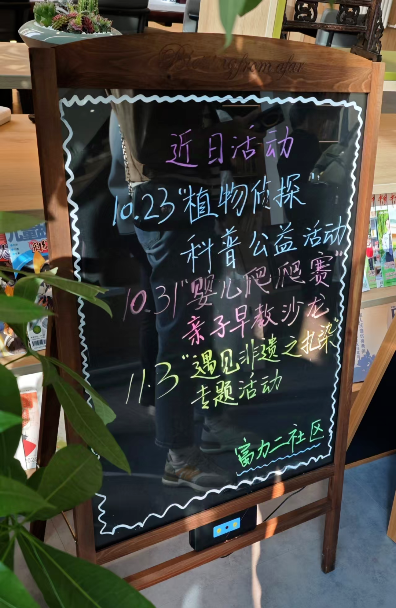 近日活动
10.23“植物侦探
科普公益活动
10.31“婴儿爬爬赛”
亲子早教沙龙
11.3“遇见非遗之扎染”
专题活动
富力二社区